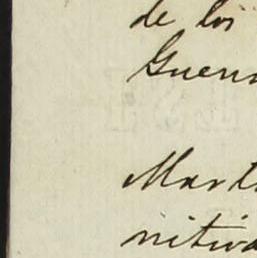 de los
Guerr
Mart
nitiva